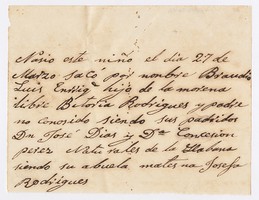 Nasio este niño el dia 27 de
Marzo saco por nombre Braudio
Luis Enriq.e hijo de la morena
libre Bitoria Rodrigues y padre
no conosido siendo sus padrinos
Dn José Dias y Da Concecion
peres Naturales de la Habana
siendo su abuela materna Josefa
Rodrigues